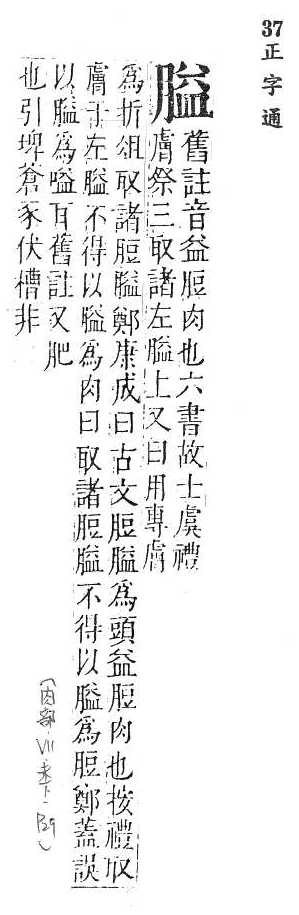 37正字通
膉
舊註音益脰肉也六書故士虞禮
膚祭三取諸左膉上又曰用專膚
為折俎取諸脰膉鄭康成曰古文脰膉為頭益脰肉也按禮取
膚于左膉不得以膉為肉曰取諸脰膉不得以膉為脰鄭蓋誤
以膉為嗌耳舊註又肥
也引埤蒼豕伏槽非
(肉部·VII·未下·P29)